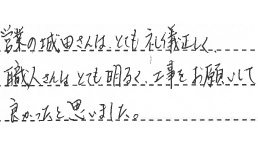 営業の城田さんは、とても礼儀正しく、
職人さんはとても明るく、工事をお願いして
良かったと思いました。